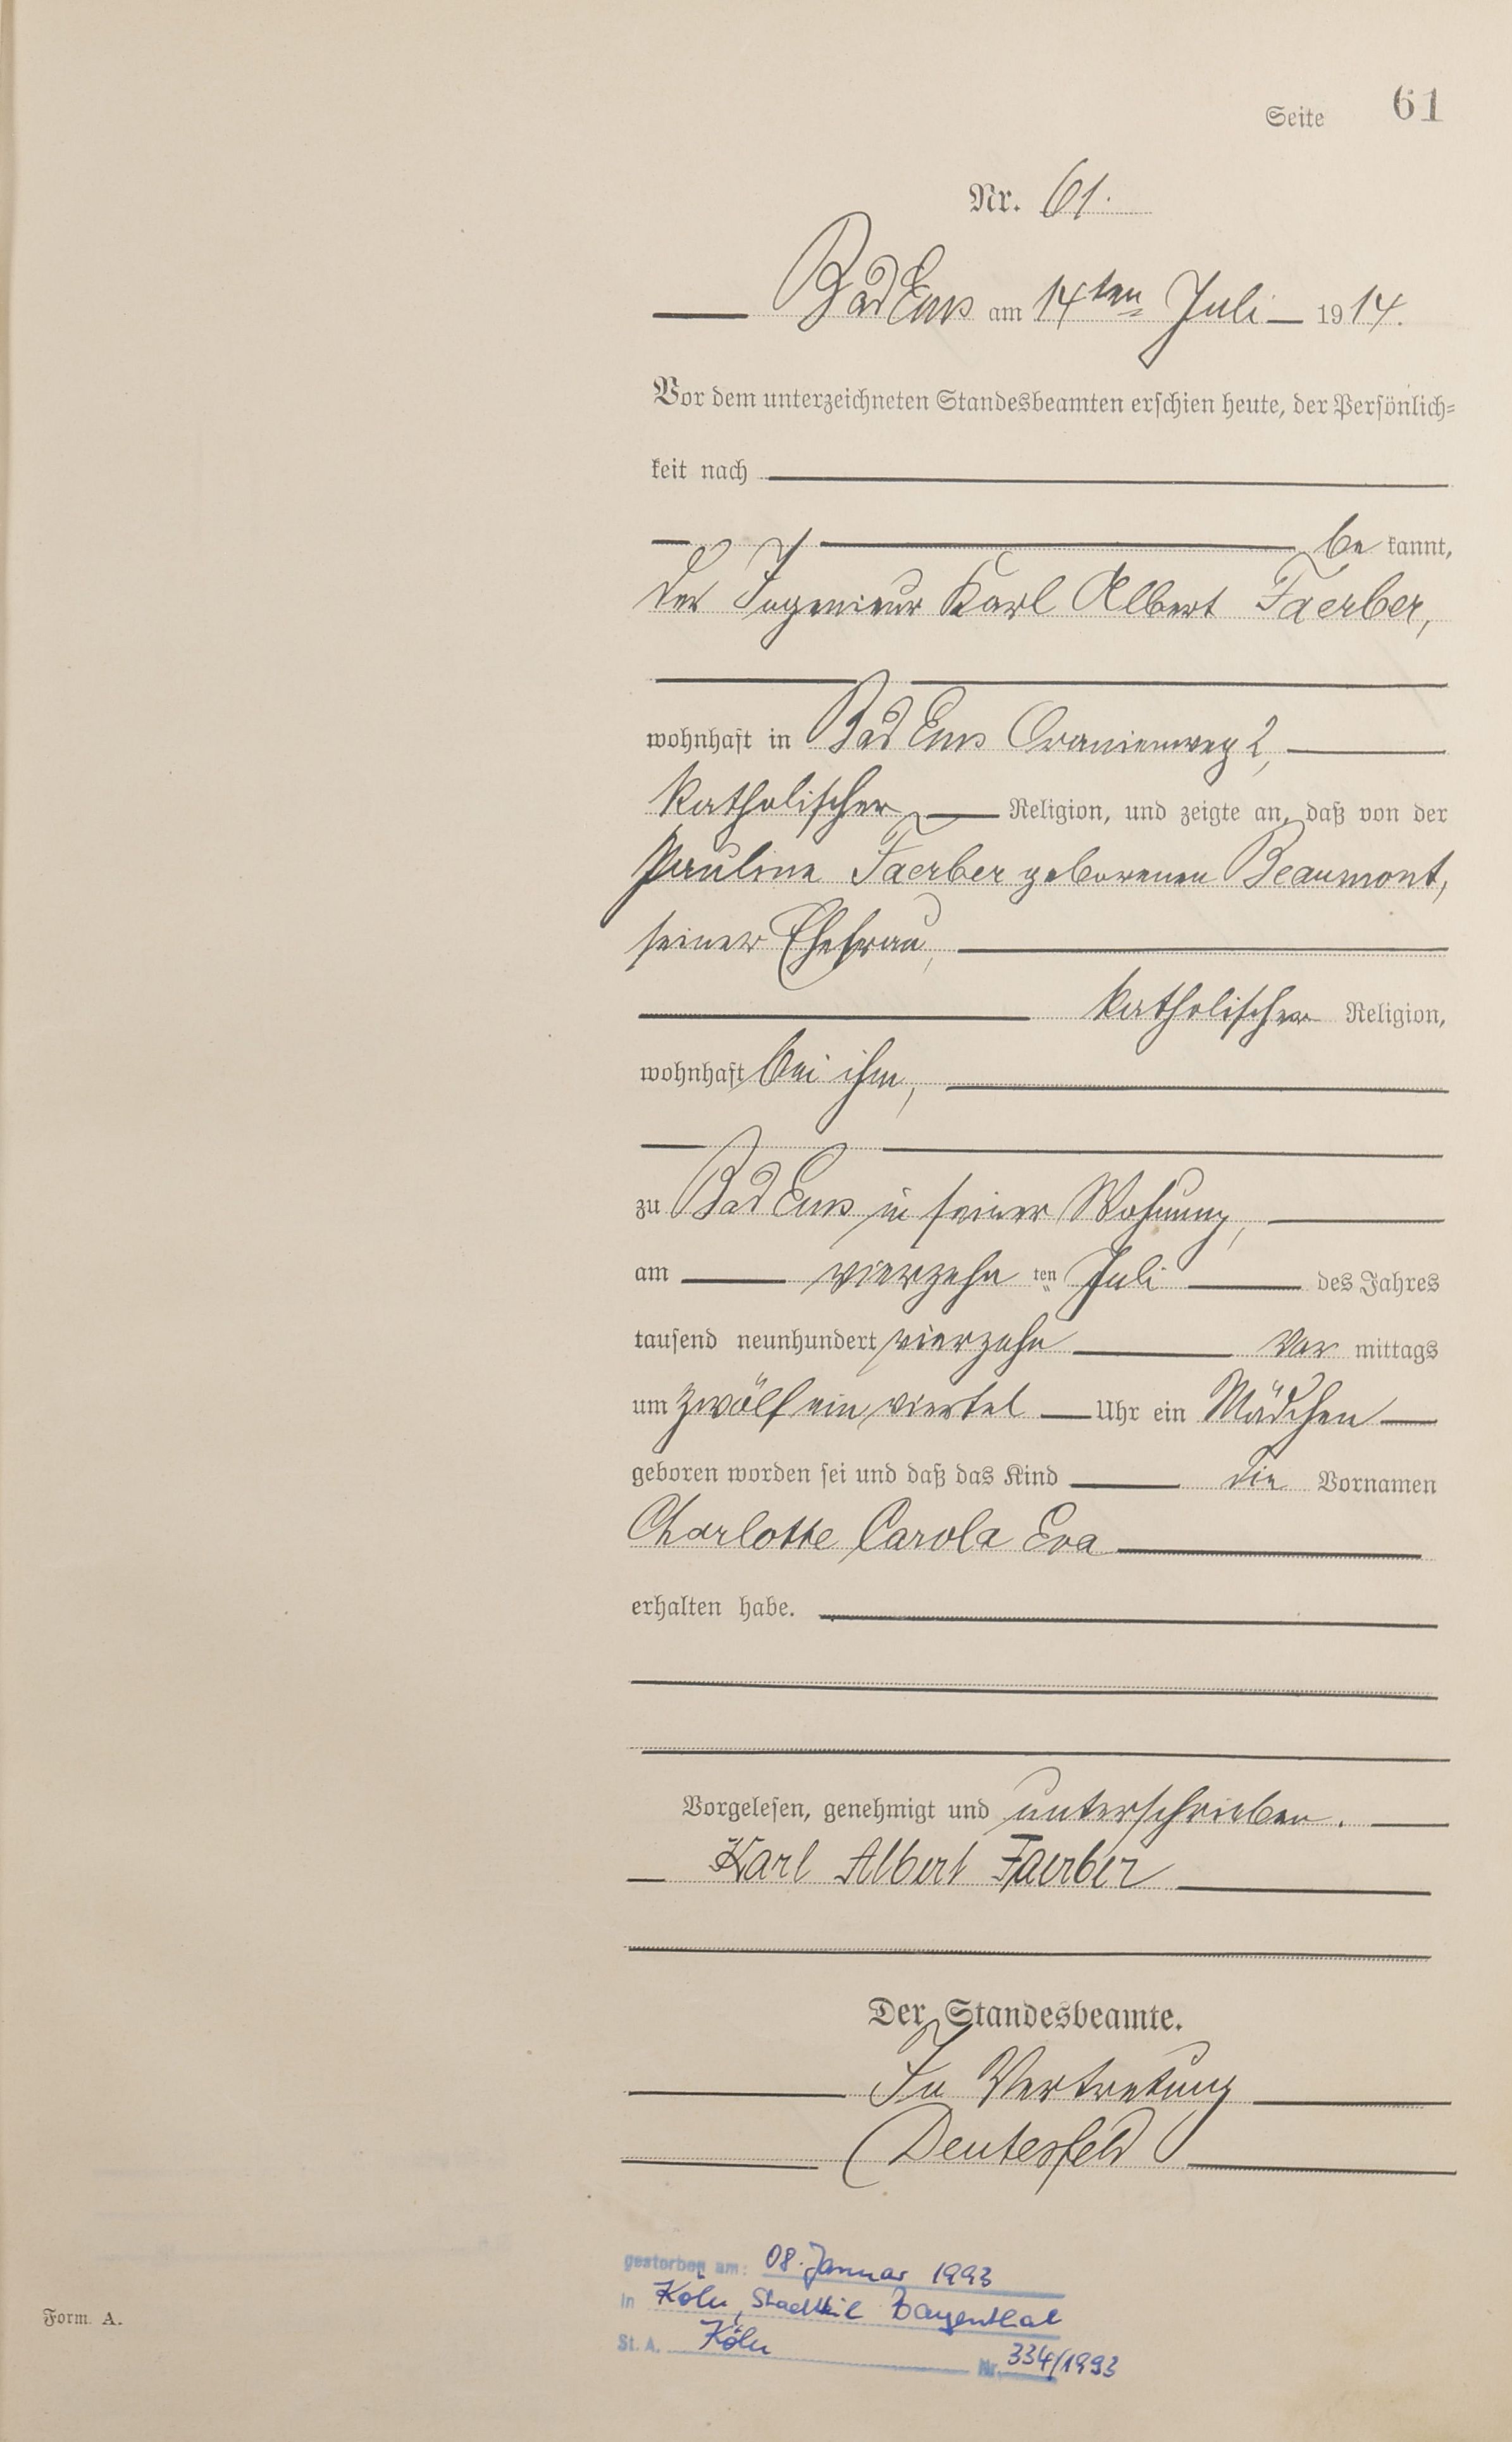 Seite 61
Nr. 61.
Bad Ems am 14ten Juli 1914.
Vor dem unterzeichneten Standesbeamten erschien heute, der Persönlich-
keit nach
be kannt,
der Ingenieur Karl Albert Faerber,
wohnhaft in Bad Ems Oranienweg 2,
katholischer Religion, und zeigte an, daß von der
Pauline Faerber geborenen Beaumont,
seiner Ehefrau,
katholischer Religion,
wohnhaft bei ihm,
zu Bad Ems in seiner Wohnung,
am vierzehn ten Juli des Jahres
tausend neunhundert vierzehn Vor mittags
um zwölf ein viertel Uhr ein Mädchen
geboren worden sei und daß das Kind die Vornamen
Charlotte Carola Eva
erhalten habe.
Vorgelesen, genehmigt und unterschrieben.
Karl Albert Faerber
Der Standesbeamte.
In Vertretung
Deutesfeld
gestorben am: 08. Januar 1993
in Köln, Stadtteil Bayenthal
St. A. Köln Nr. 334/1993
Form. A.